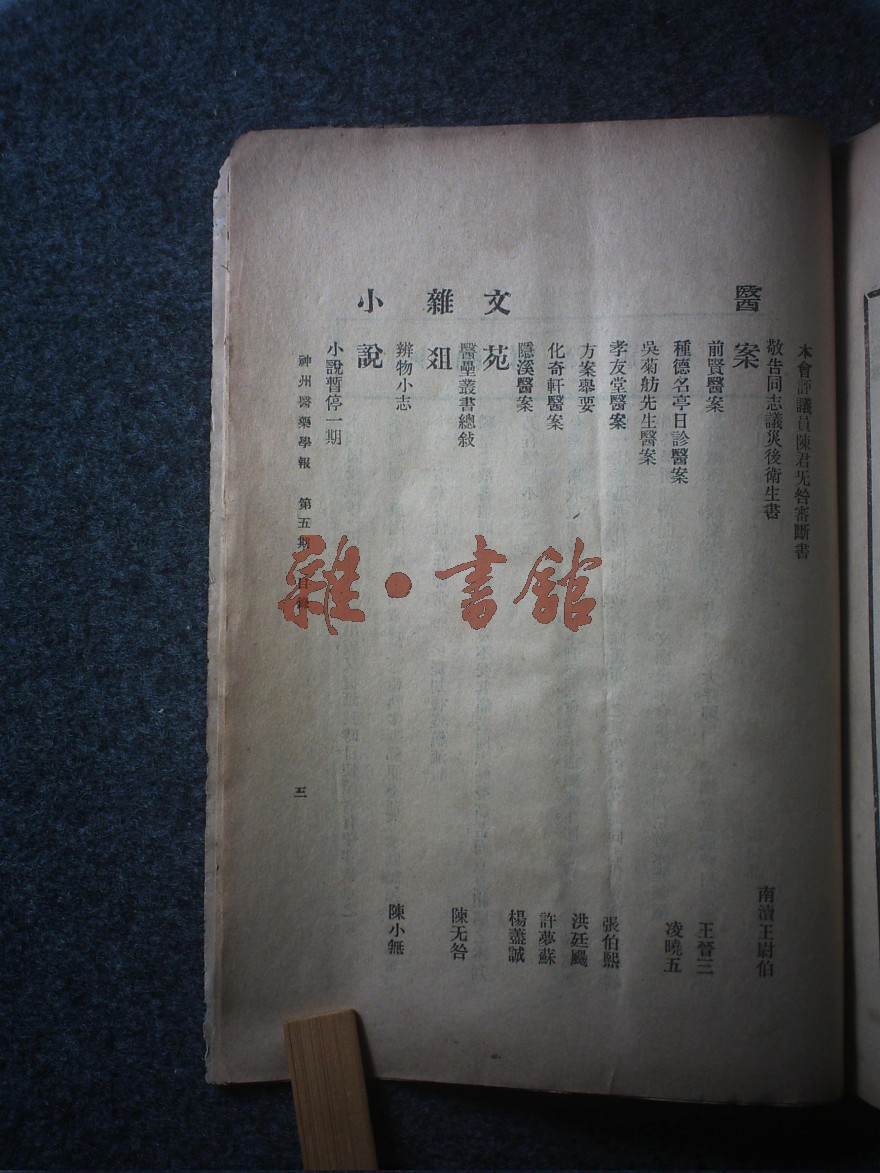 本會評議員陳君旡咎審斷書
敬告同志議災後衛生書 南瀆王尉伯
醫案
前賢醫案 王晉三
種德名亭日診醫案 凌曉五
吳菊舫先生醫案
孝友堂醫案 張伯熙
方案舉要 洪廷颺
化奇軒醫案 許夢蘇
隱溪醫案 楊藎誠
文苑
醫壘叢書總敍 陳无咎
雜俎
辨物小志 陳小無
小說
小說暫停一期
神州醫藥學報 第五期 目錄 三
雜·書館